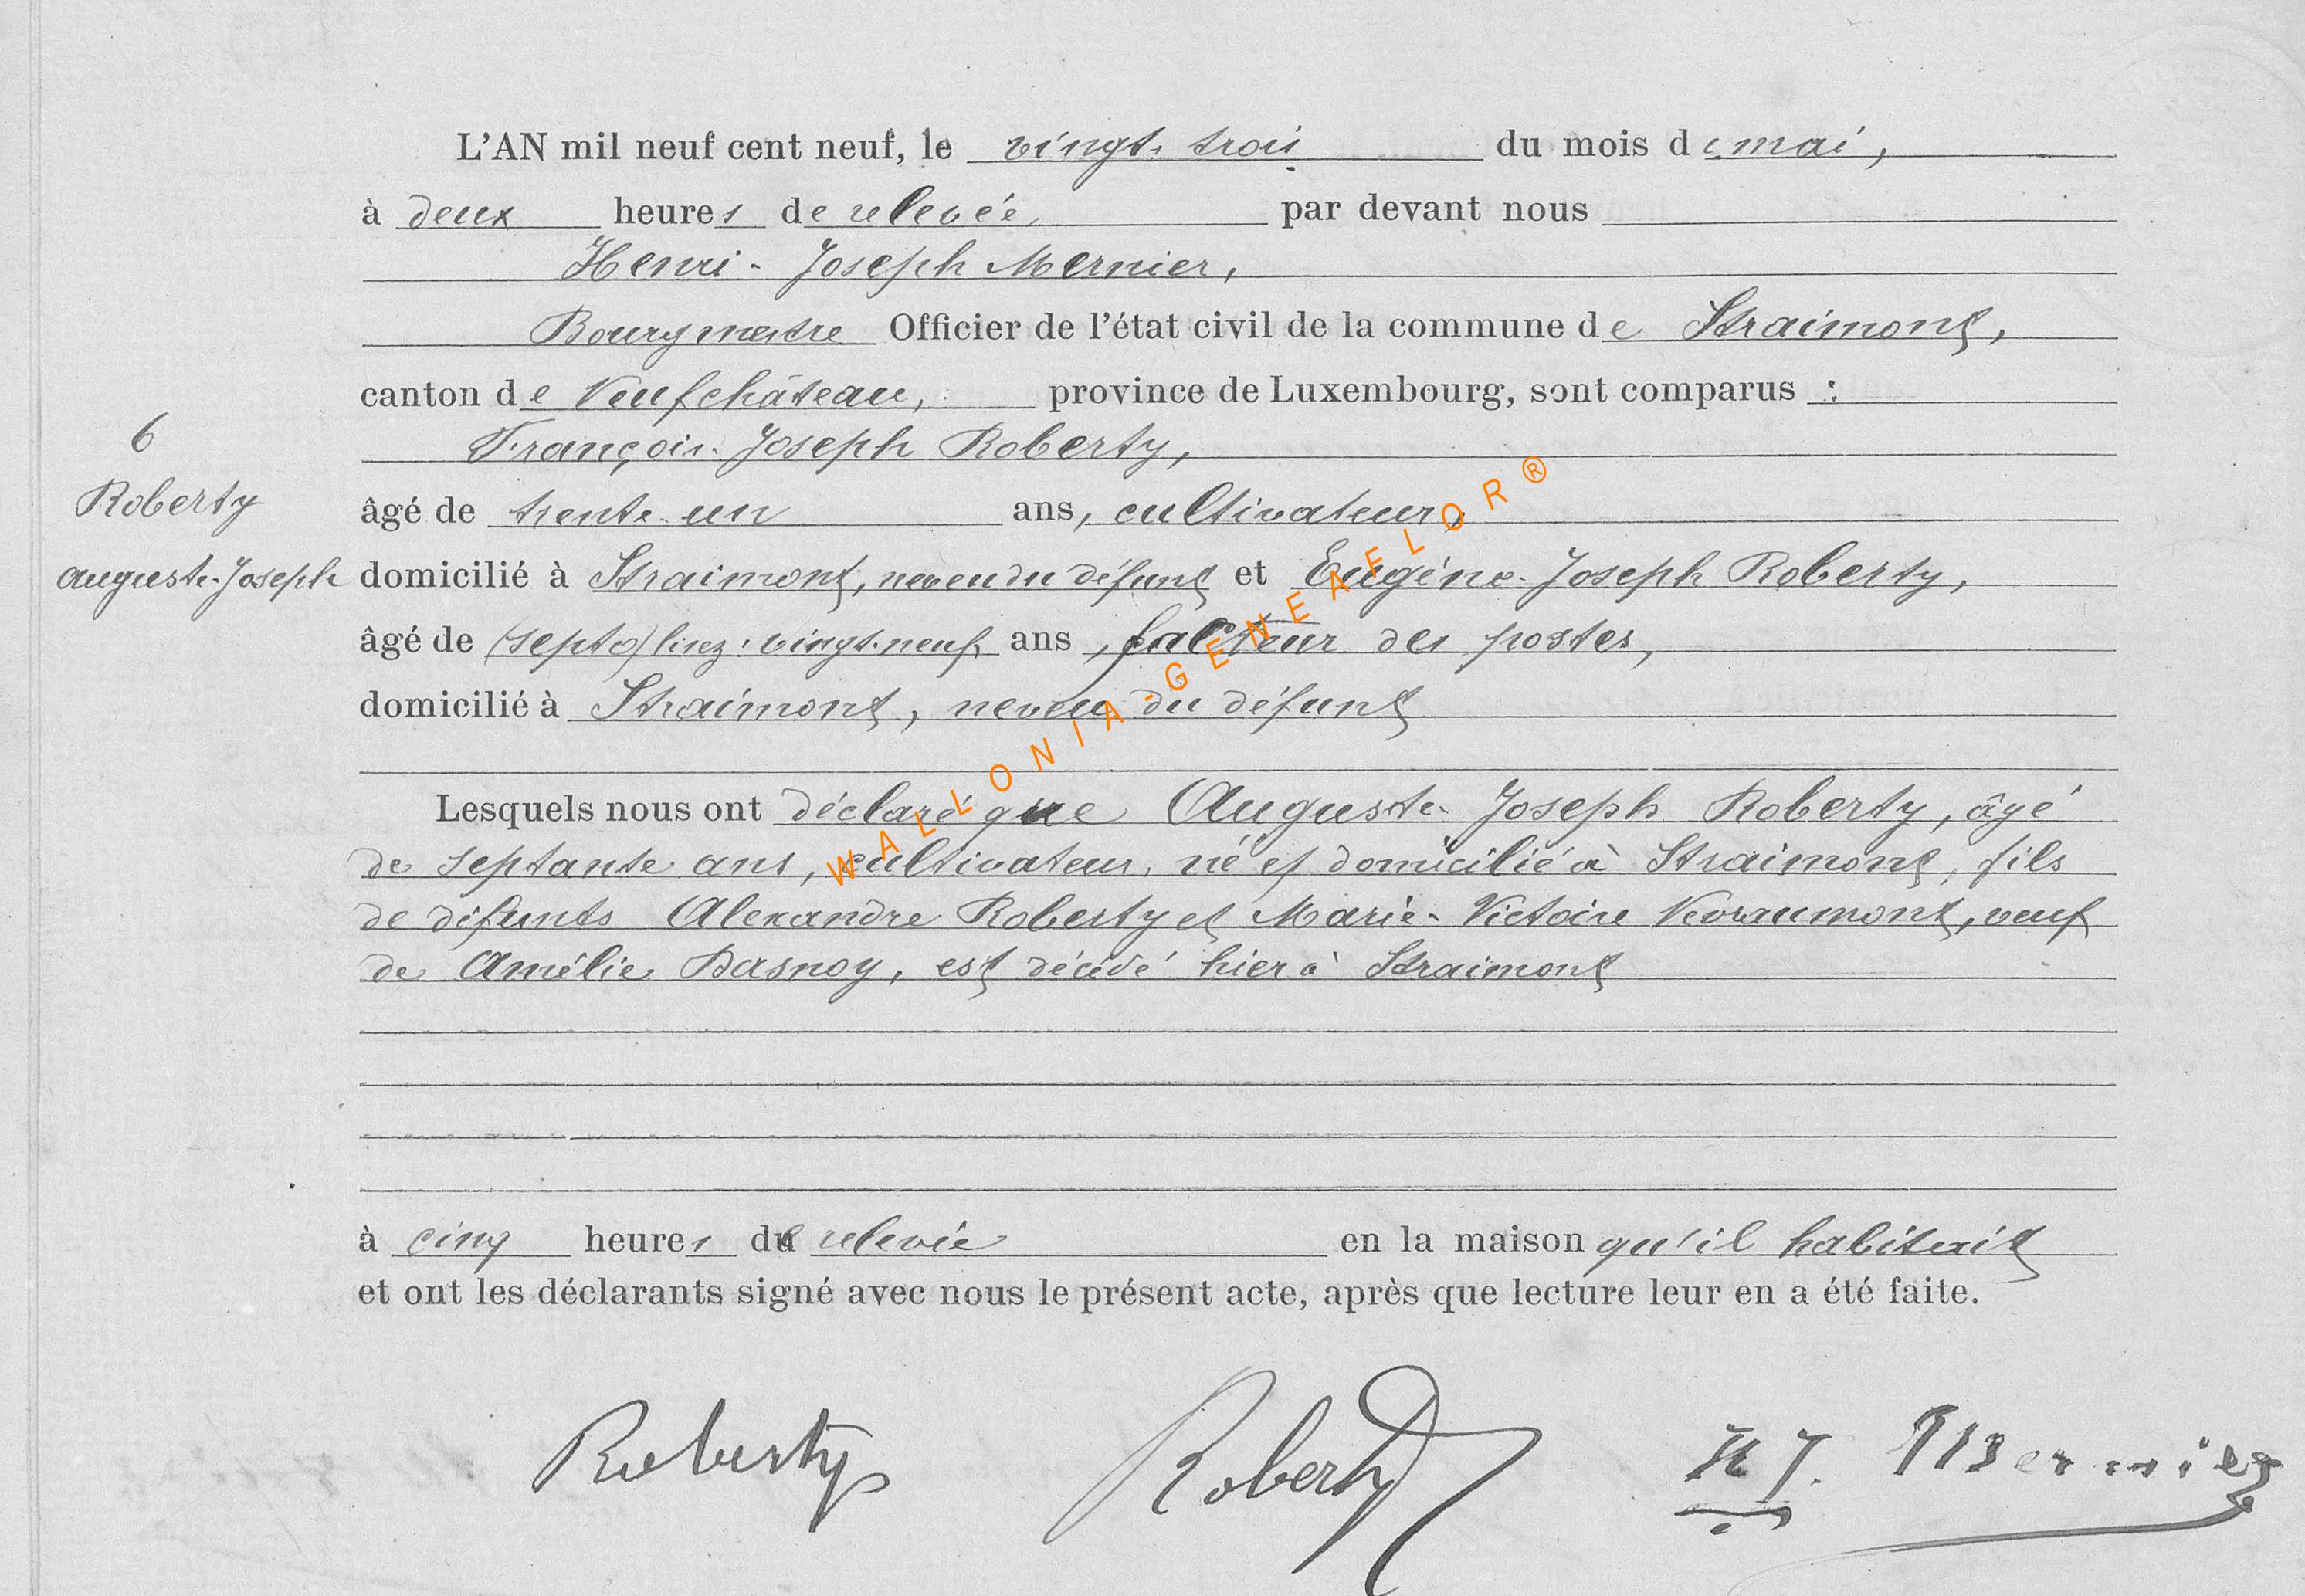 L'AN mil neuf cent neuf, le vingt-trois du mois de mai,
à deux heures de relevée, par devant nous
Henri-Joseph Mernier,
Bourgmestre Officier de l'état civil de la commune de Straimont,
canton de Neufchâteau, province de Luxembourg, sont comparus :
François-Joseph Roberty,
6
Roberty
Auguste-Joseph
âgé de trente-un ans, cultivateur,
domicilié à Straimont, neveu du défunt et Eugène-Joseph Roberty,
âgé de (septa) lisez: vingt-neuf ans, facteur des postes,
domicilié à Straimont, neveu du défunt
Lesquels nous ont déclaré que Auguste-Joseph Roberty, âgé
de septante ans, cultivateur, né et domicilié à Straimont, fils
de défunts Alexandre Roberty et Marie-Victoire Nevraumont, veuf
de Amélie Dasnoy, est décédé hier à Straimont
à cinq heures de relevée en la maison qu'il habitait
et ont les déclarants signé avec nous le présent acte, après que lecture leur en a été faite.
Roberty Roberty H J. Mernier
WALLONIA-GENEAFLOR®